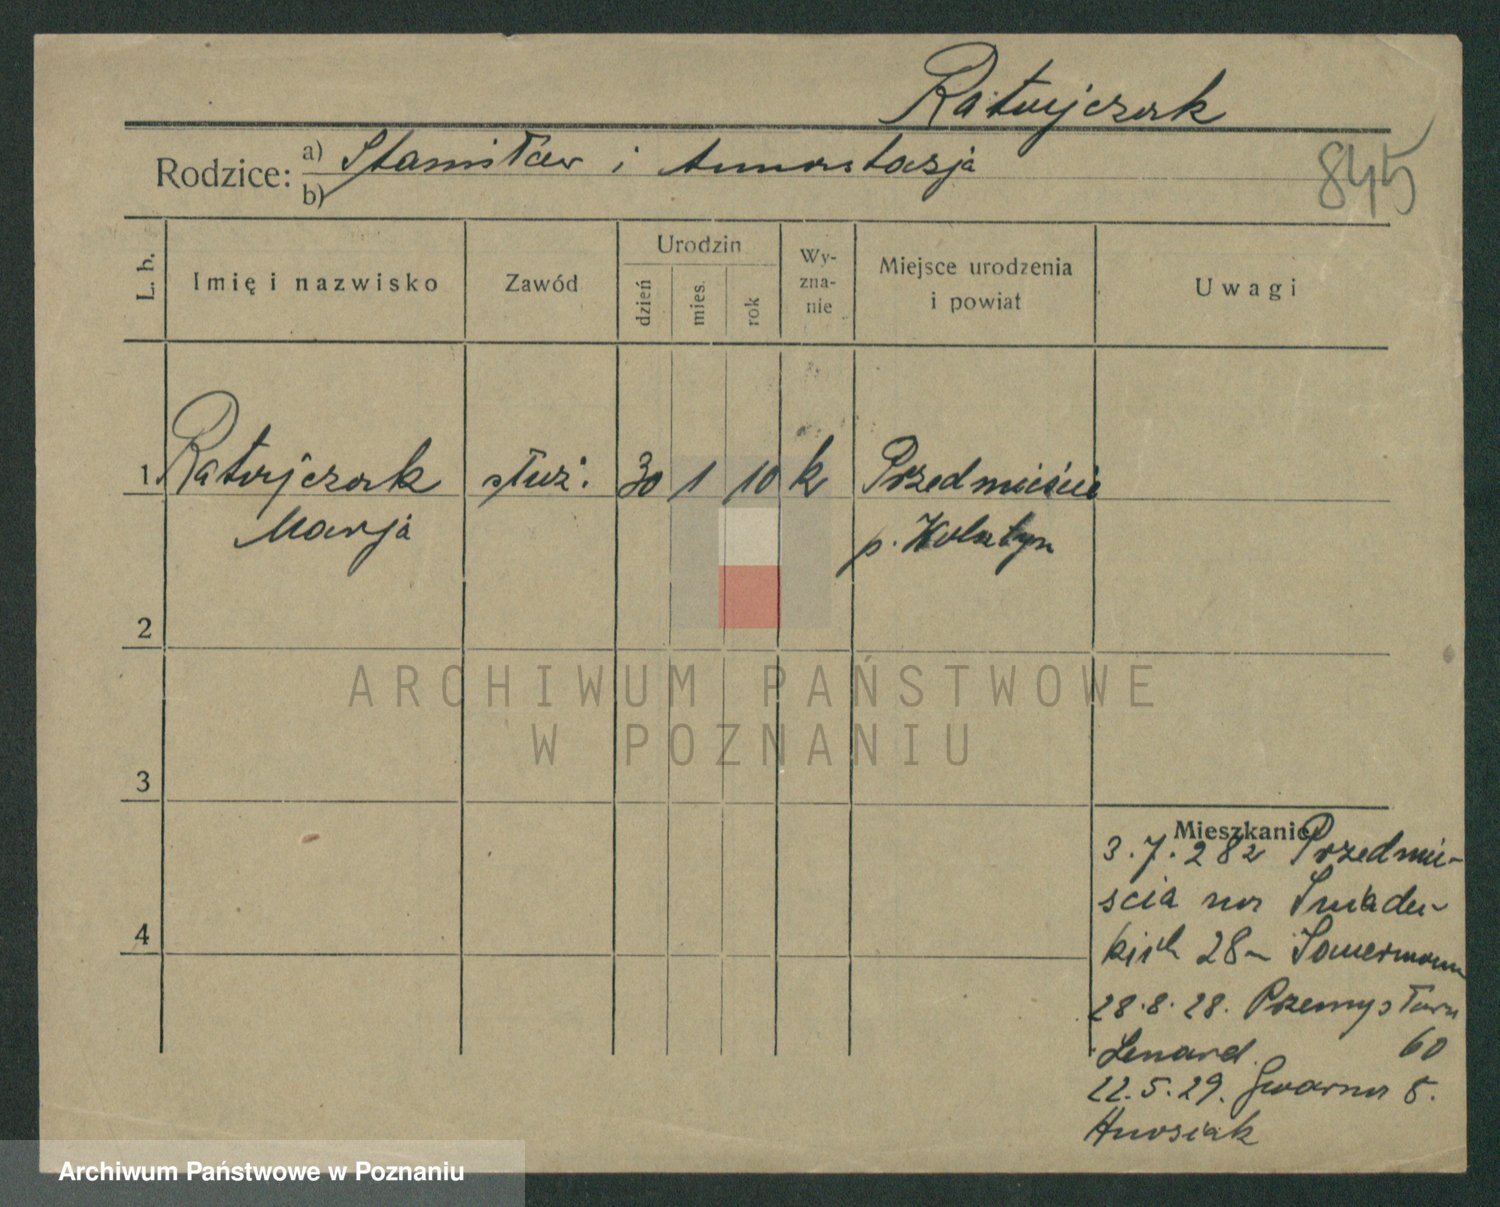 Ratajczak
845
Rodzice: a) Stanisław i Anastazja
b)
L. b.
Imię i nazwisko
Zawód
Urodzin
dzień
mies.
rok
Wy-
zna-
nie
Miejsce urodzenia
i powiat
Uwagi
1 Ratajczak służ. 30 1 10 k Przedmieście
Marja p. Wolsztyn
2
3
4
Mieszkanie
3.7.28 z Przedmie-
ścia na Śniade-
kich 28
28.8.28. Przemysława
Lenard. 60
22.5.29. Gwarna 8.
ARCHIWUM PAŃSTWOWE
W POZNANIU
Archiwum Państwowe w Poznaniu